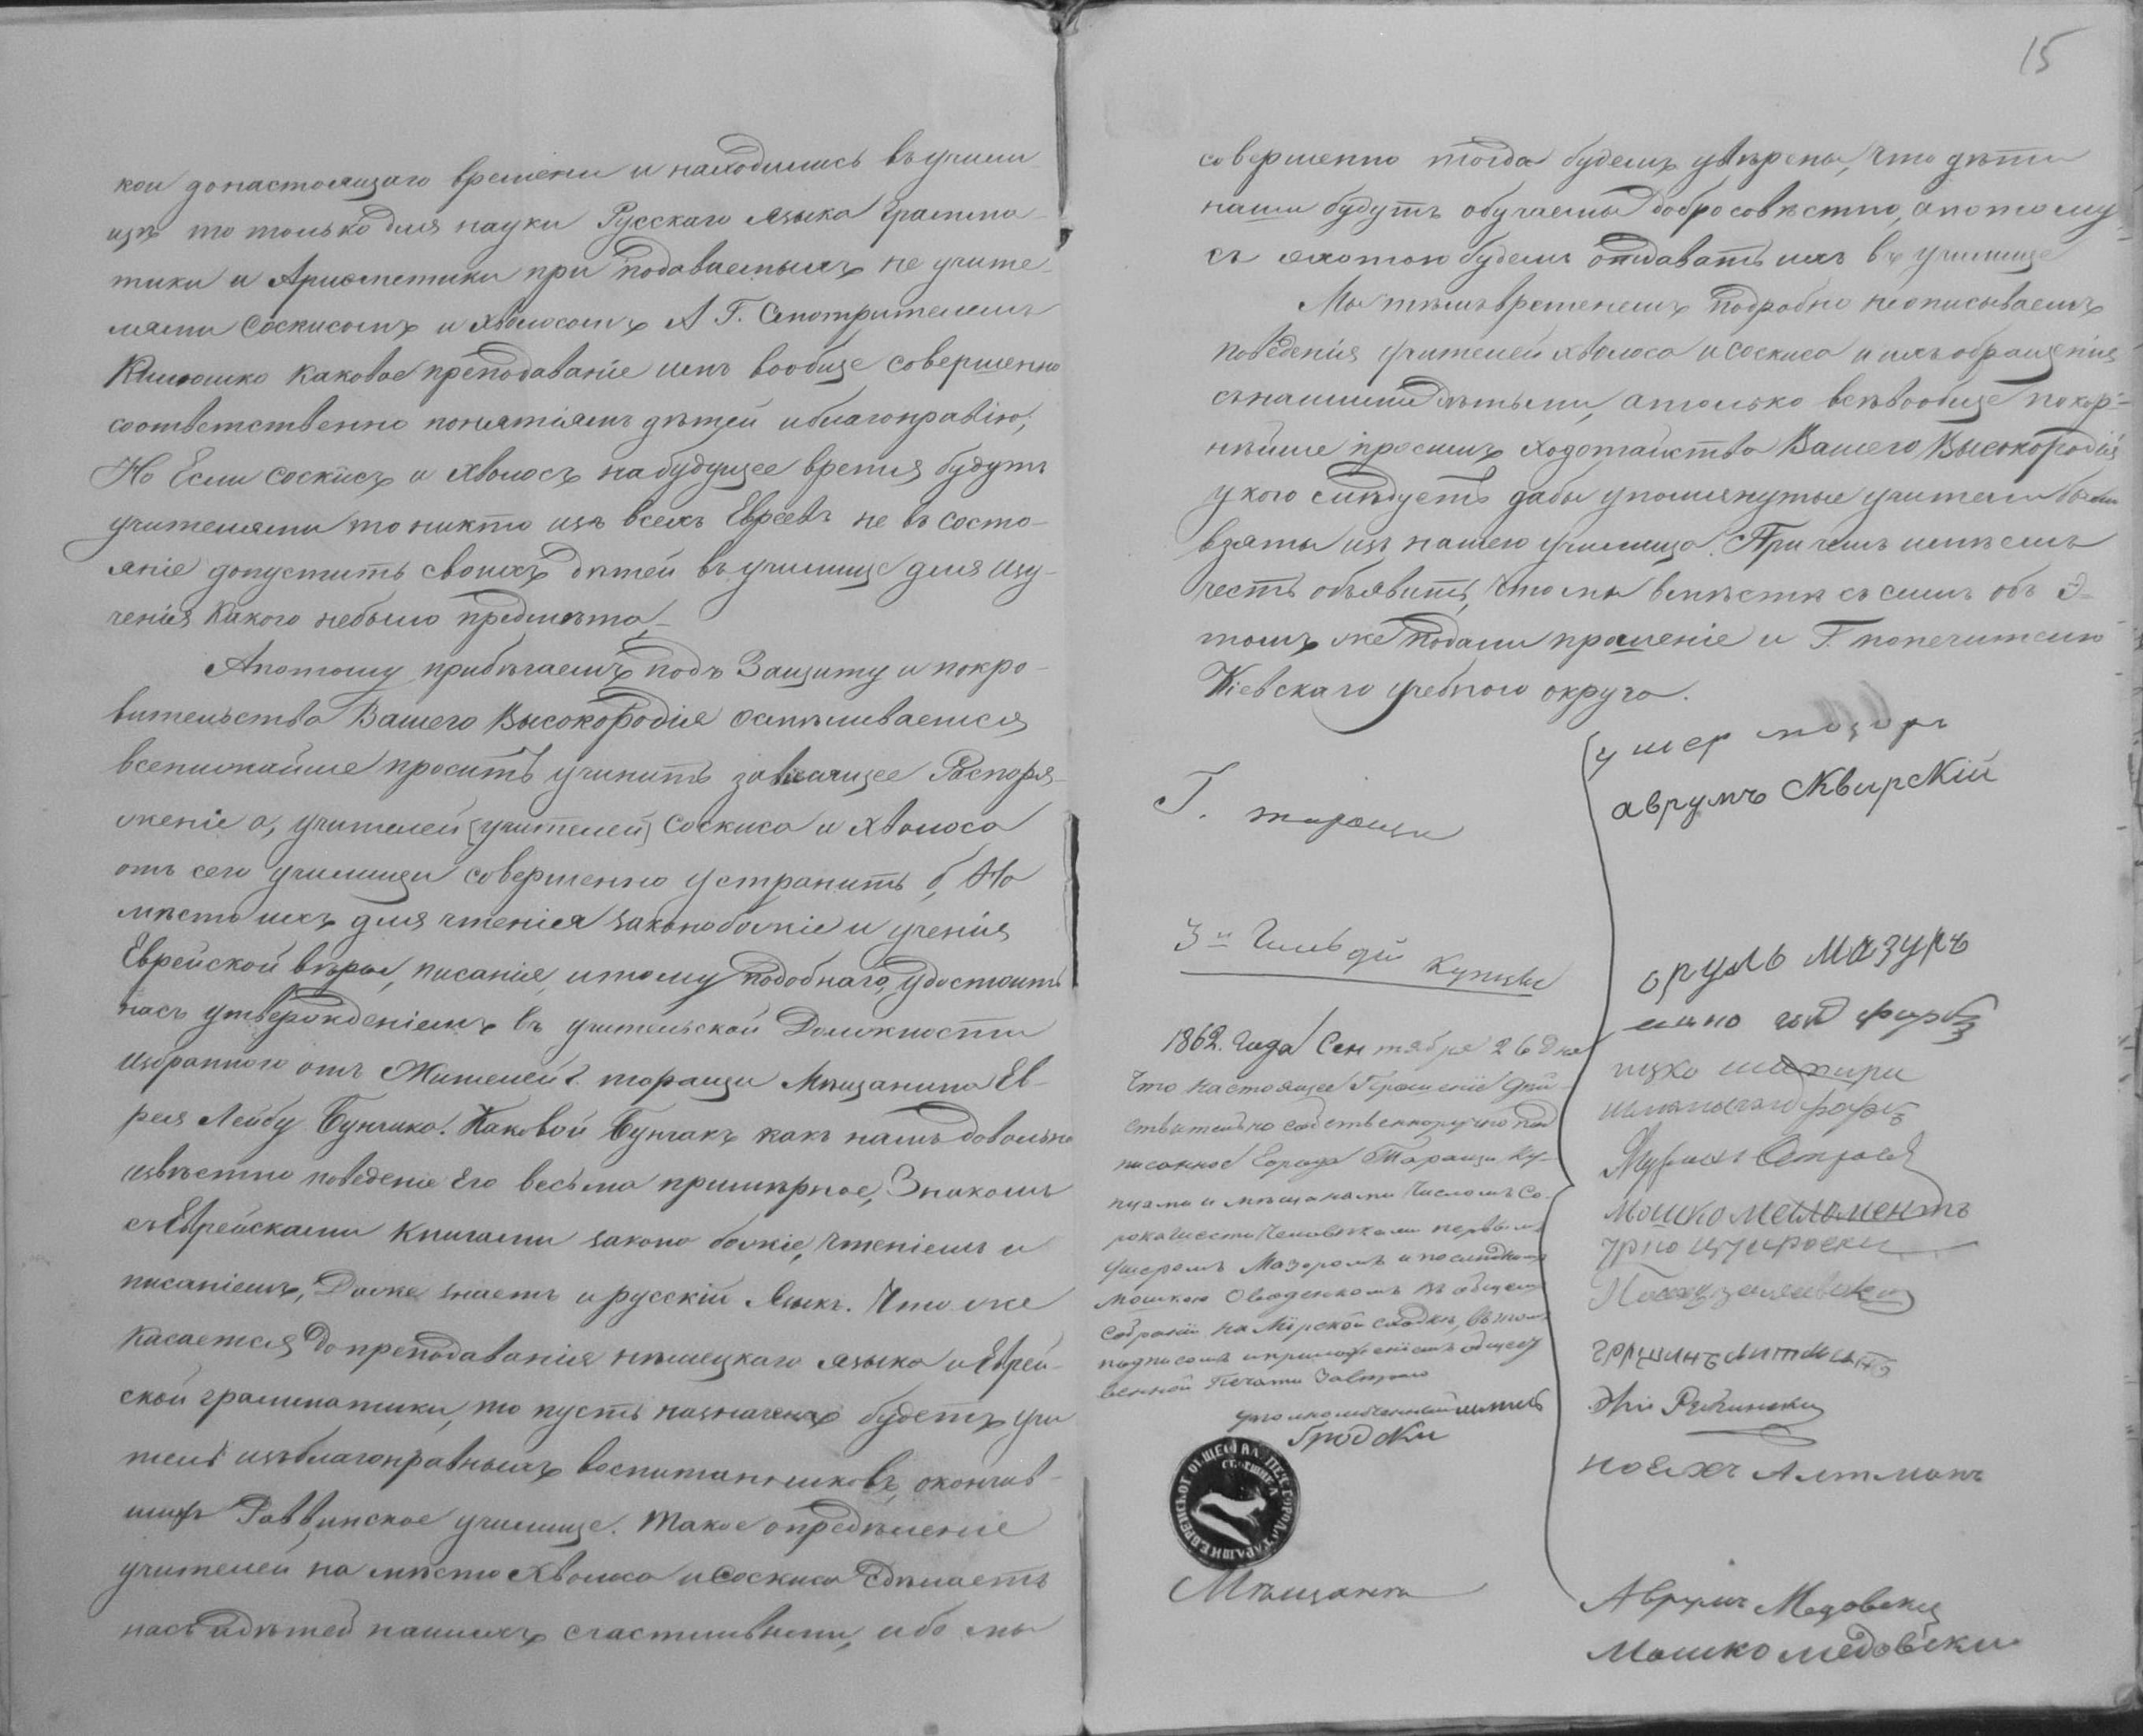 кои донастоящаго времени и находились въ учили-
щѣ то только для науки Русскаго языка Грамма-
тики и Ариѳметики при подаваемыхъ не учите-
лями Соскисомъ и Хволосомъ А Г. Смотрителемъ
Каковое преподаваніе имъ вообще совершенно
соотвѣтственно понятіямъ дѣтей и благонравію;
Но Если Соскисъ и Хволосъ на будущее время будутъ
учителями то никто изъ всехъ Евреевъ не въ состо-
яніе допустить своихъ дѣтей въ училище для изу-
ченія Какого небыло предмѣта
Апотому прибѣгаемъ подъ Защиту и покро-
вительство Вашего Высокородія осмѣливаемся
всепижайше просить учинить зависящее Распоря-
женіе а, учителей [учителей] Соскиса и Хволоса
отъ сего училищи совершенно устранить б, На
мѣсто ихъ для чтенія законобожіе и ученія
Еврейской вѣры, писанія, итому подобнаго, удостоить
насъ утвержденіемъ въ учительской Должности
избранного отъ Жителей г. таращи Мѣщанина Ев-
рея Лейбу Бунчика. Каковой Бунчакъ какъ намъ довольно
извѣстно поведеніе Его весьма примѣрное, Знакомъ
съ Еврейсками Книгами законо божіе, чтеніемъ и
писаніемъ, Даже знаетъ и русскій Языкъ. Что же
Касается до преподаванія нѣмецкаго языка и Еврей-
ской грамматики, то пусть назначенъ будетъ учи
тель изъ благонравныхъ воспитанниковъ, окончив-
шихъ Раввинское училище. Такое опредѣленіе
учителей на мѣсто Хволоса и Соскиса сдѣлаетъ
насъ и дѣтей нашихъ счастливыми, ибо мы
15
совершенно тогда будемъ увѣрены, что дѣти
наши будутъ обучаемы добросовѣстно, а потому
съ охотою будемъ отдавать ихъ въ училище
Мы тѣмъ временемъ подробно неописываемъ
поведенія учителей Хволоса и Соскиса и ихъ обращенія
съ нашими дѣтьми, а только всѣ вообще покор-
нѣйше просимъ ходотайства Вашего Высокородія
у кого слѣдуетъ дабы упомянутые учители были
взяты изъ нашего училища. При чемъ имѣемъ
честь объявить, что мы вмѣстѣ съ симъ объ э-
томъ же подали прошеніе и Г. попечителю
Кіевскаго учебного округа.
ушер мозоръ
аврумъ Сквирскій
Г. таращи
3й Гильдій Купцы
сруль Мазуръ
1862. Года Сентября 26 дня
Что настоящее Прошеніе дѣй-
ствительно собственноручно под
писанное Города Таращи Ку-
пцами и мѣщанами числомъ со-
рока шести Человѣками первымъ
Ушеромъ Мазоромъ и послѣднимъ
мошкою въ общемъ
Собраніи на Мірской сходкѣ, въ томъ
подписомъ и приложеніемъ общест
венной Печати
уполномоченный
Бродски
ицко
мошко
Ноехъ Алтманъ
Мѣщане
Аврумъ Медовски
Мошко медовски